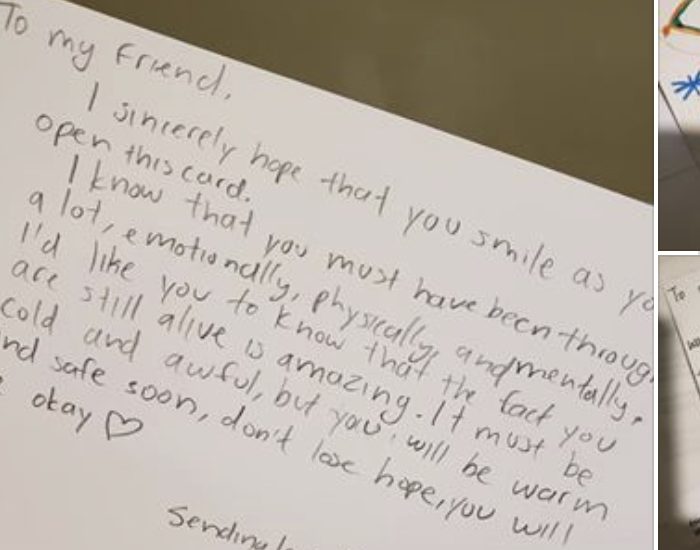 To my Friend,
I sincerely hope that you smile as
open this card.
I know that you must have been through
a lot, emotionally, physically, and mentally.
I'd like you to know that the fact you
are still alive is amazing. It must be
cold and awful, but you will be warm
and safe soon, don't lose hope, you will
okay ♡
Sending
To